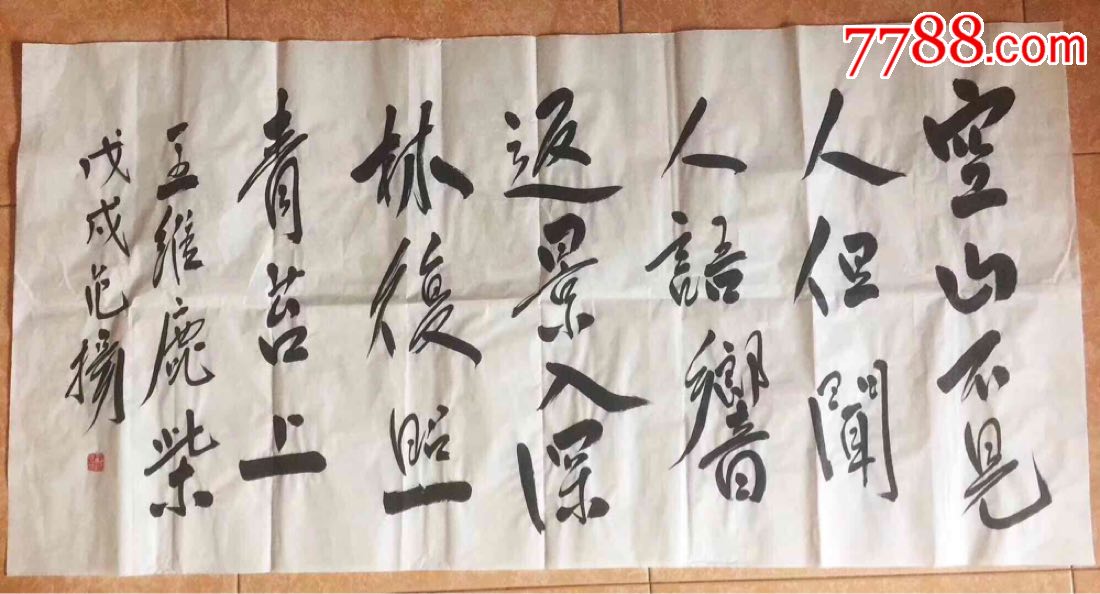 空山不見
人但聞
人語響
返景入深
林復照
青苔上
王維鹿柴
戊戌范揚
7788.com